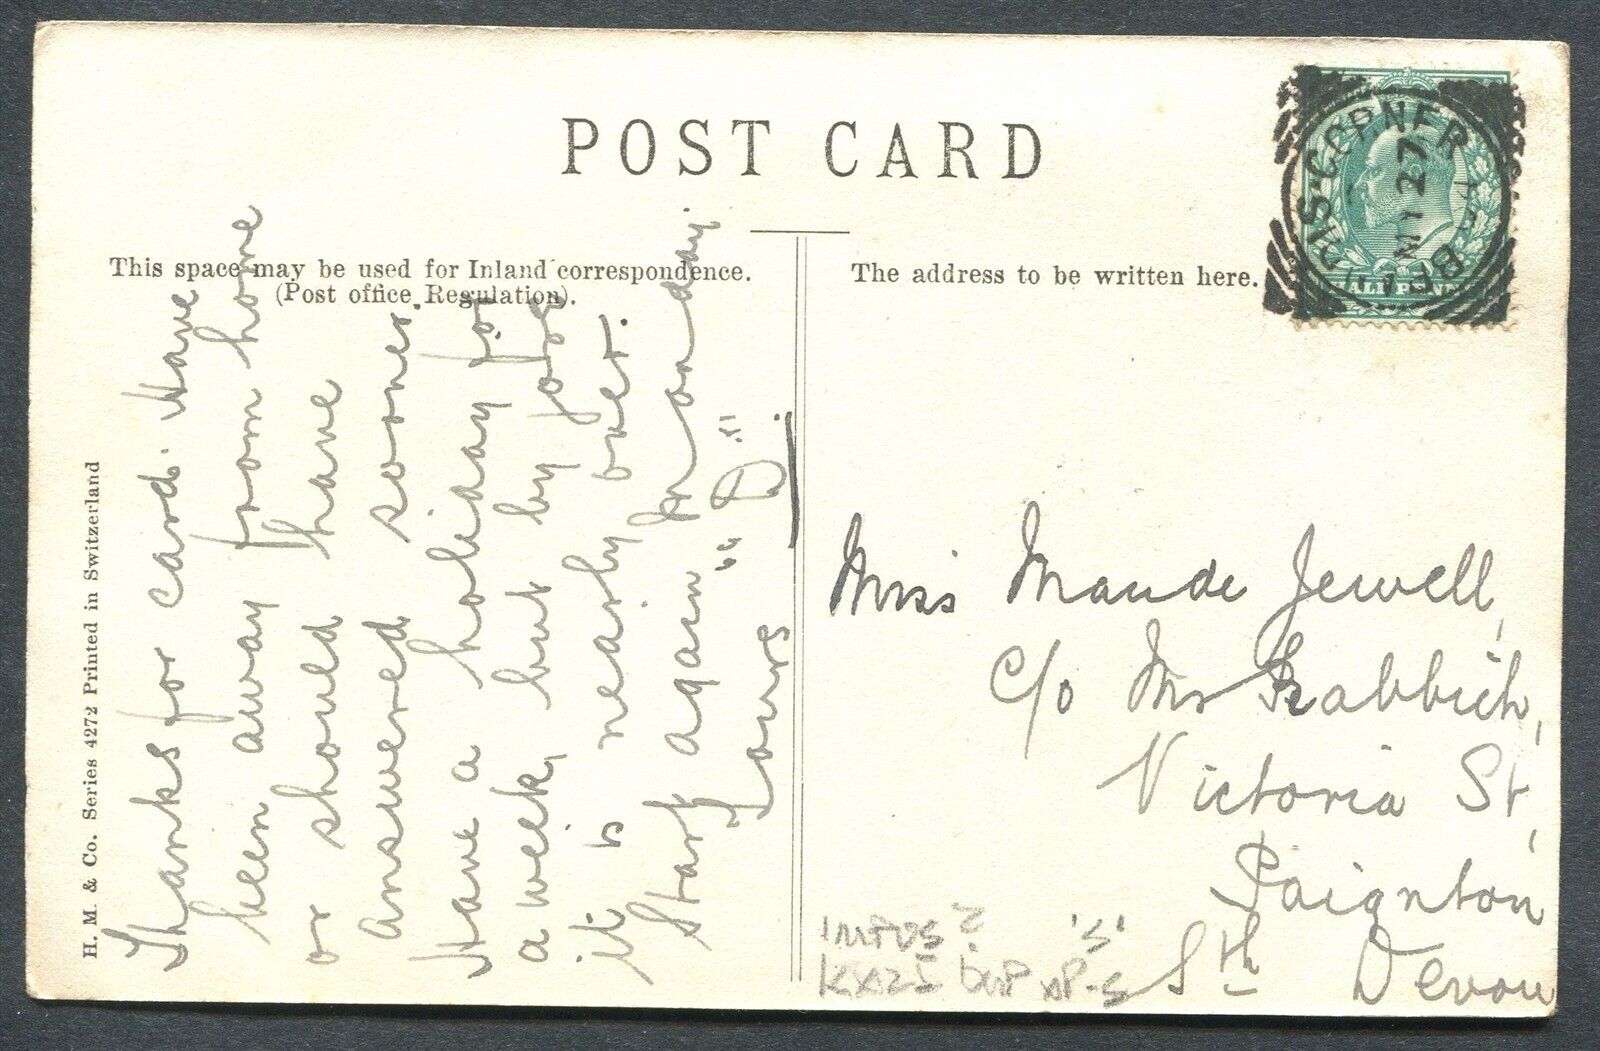 POST CARD
This space may be used for Inland correspondence.
(Post office Regulation).
The address to be written here.
H. M. & Co. Series 4272 Printed in Switzerland
Thanks for card. Have
been away from home
or should have
answered sooner.
Have a holiday for
a week, but by jove
it is nearly over.
Start again Monday.
Yours "D".
Miss Maude Jewell,
c/o Mr Rabbich,
Victoria St,
Paignton
Sth Devon
CORNER
MY 27
HALF PENNY